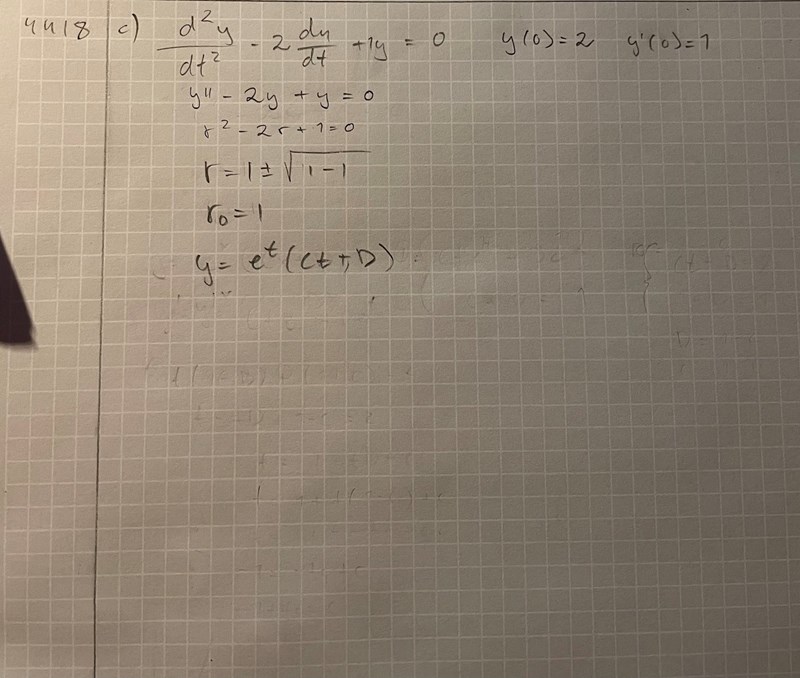 4418 c) d²y/dt² - 2 dy/dt + 1y = 0 y(0)=2 y'(0)=1
y'' - 2y + y = 0
r² - 2r + 1 = 0
r = 1 ± √(1-1)
r₀ = 1
y = e^t (Ct + D)